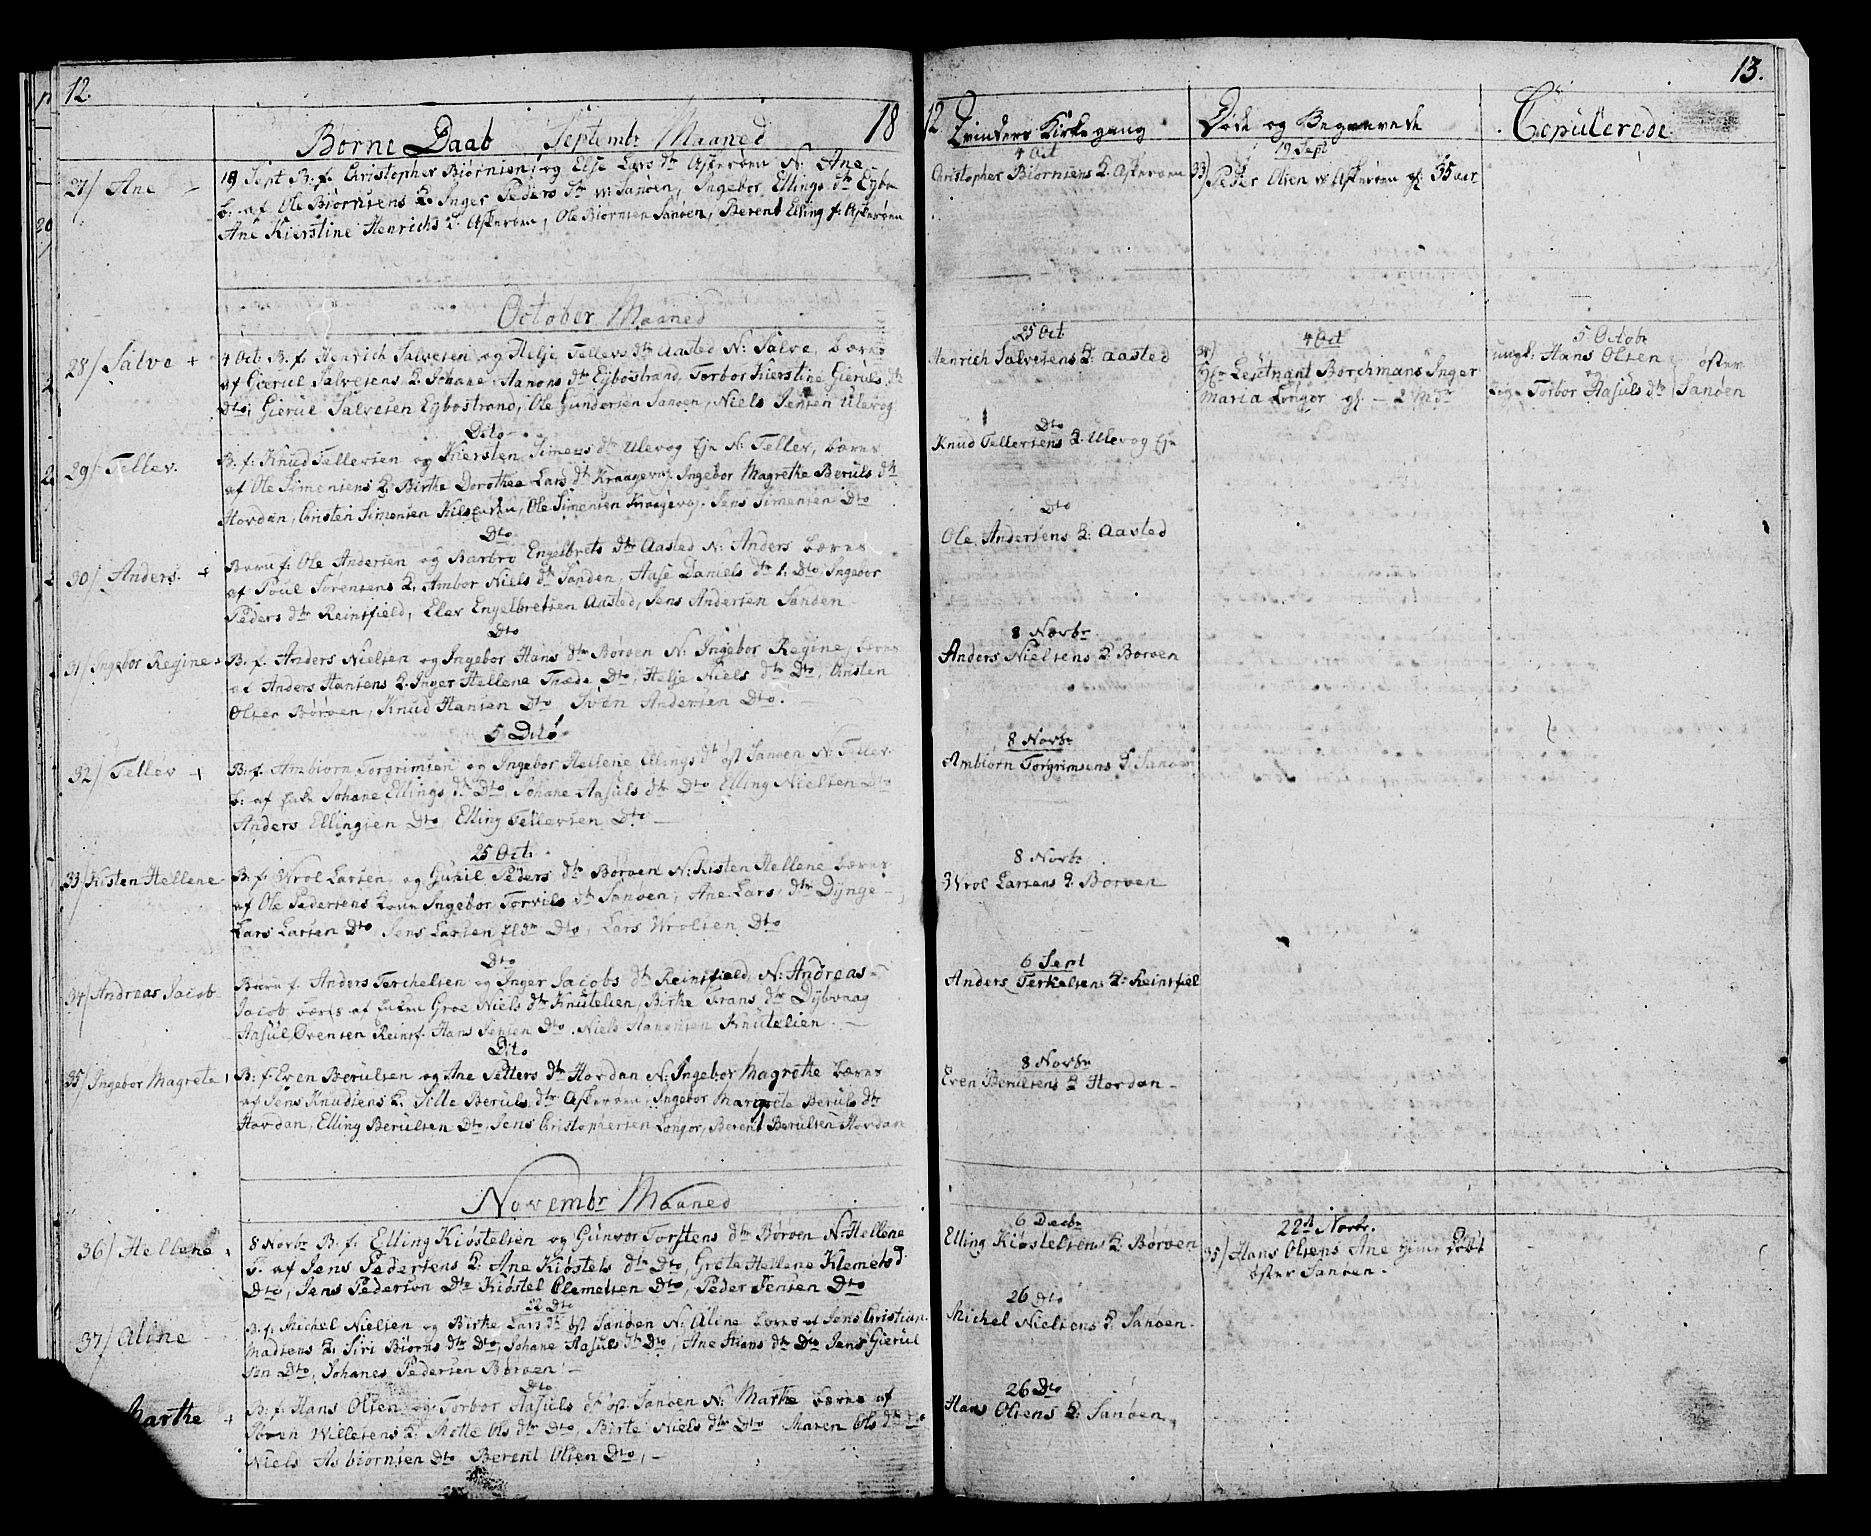 12.
Børne Daab Septembr Maaned 18
27/ Ane
19 Sept B. f. Christopher Biørnsen og Else Lars dtr Askerøen N: Ane
b. af Ole Biørnsens K. Inger Peders dtr w: Sanøen, Ingebor Ellings dtr Eybo
Ane Kierstine Henrichs K. Askerøen, Ole Biørnsen Sanøen, Berent Elling f. Askerøen
October Maaned
28/ Salve +
4 Oct: B. f. Henrich Salvesen og Helje Tellevs dtr Aasted N: Salve, bæres
af Gierul Salvesens K. Johane Aanons dtr Eybostrand, Torbor Kierstine Gieruls dtr
Dto, Gierul Salvesen Eybostrand, Ole Gundersen Sanøen, Niels Jensen Ulevog
Dito
29/ Tellev.
B. f. Knud Tellevsen og Kiersten Simens dtr Ulevog Eje N: Tellev, bæres
af Ole Simensens K. Birthe Dorothea Lars dtr Kraagevog, Ingebor Magrethe Beruls dtr
Hordan, Cristen Simensen, Ole Simensen Kraagevog. Jens Simensen Dto
Dto
30/ Anders. +
Barn f. Ole Andersen og Barbro Engelbrets dtr Aasted N: Anders bæres
af Poul Sørensens K. Ambor Niels dtr Sanden, Aase Daniels dtr Dto, Ingebor
Peders dtr Reinsfield, Elev Engelbretsen Aasted, Jens Andersen Sanden
Dto
31/ Ingebor Regine +
B. f. Anders Nielsen og Ingebor Hans dtr Børøen N: Ingebor Regine, bæres
af Anders Hansens K. Inger Hellene Træde Dto, Helje Niels dtr Dto, Cristen
Olsen Børøen, Knud Hansen Dto, Iven Andersen Dto.
5 Dito
32/ Tellev +
B. f. Ambiorn Torgrimsen og Ingebor Hellene Ellings dtr øst Sanøen N: Tellev
b. af Johane Ellings dtr Dto, Johane Aasuls dtr Dto Elling Nielsen Dto
Anders Ellingsen Dto, Elling Tellevsen Dto
25 Oct:
33/ Kisten Hellene
B. f. Wrol Larsen og Gunil Peders dtr Børøen N: Kisten Hellene bæres
af Ole Pedersens Kone Ingebor Torvils dtr Sanøen, Ane Lars dtr Dynge
Lars Larsen Dto, Jens Larsen Dto, Lars Wrolsen Dto
Dto
34/ Andreas Jacob
Barn f. Anders Terchelsen og Inger Jacobs dtr Reinsfield, N: Andreas
Jacob bæres af Groe Niels dtr Knutelien, Birthe Frans dtr Dybvaag
Aasul Ovensen Reinsf. Hans Jensen Dto. Niels Aanonsen Knutelien.
Dito
35/ Ingebor Magrete
B. f. Even Berulsen og Ane Petters dtr Hordan N: Ingebor Magrethe bæres
af Jens Knudsens K. Sille Beruls dtr Askerøen, Ingebor Margrete Beruls dtr
Hordan, Elling Berulsen Dto, Jens Cristophersen Longor, Berent Berulsen Hordan
Novembr Maaned
36/ Hellene
8 Novbr B. f. Elling Kiøstelsen og Gunvor Torstens dtr Børøen N: Hellene
b. af Jens Pedersens K. Ane Kiøstels dtr Dto, Grete Hellene Klemets d
Dto, Jens Pederson Dto Kiøstel Clemetsen Dto, Peder Jensen Dto
22 Dto
37/ Aline
B. f. Michel Nielsen og Birthe Lars dtr øst Sanøen N: Aline bæres af Jens Christian
Madsens K. Siri Biørns dtr Dto, Johane Aasuls dtr Dto, Ane Hans dtr Dto Jens Gierul
sen Dto, Johanes Pedersen Børøen
Dto
Marthe +
B. f. Hans Olsen og Torbor Aasuls dtr øst Sanøen N: Marthe bæres af
Søren Willesens K. Mette Ols dtr Dto, Birte Niels dtr Dto Maren Ols dtr Dto
Niels Asbiørnsen Dto Berent Olsen Dto,
13.
12 Qvinders Kirkegang
Døde og Begravede
Copulerede
4 Oct
Christopher Biørnsens K. Askerøen
25 Oct:
Henrich Salvesens K. Aasted
Dto
Knud Tellevsens K. Ulevog Eje
Dto
Ole Andersens K. Aasted
8 Novbr.
Anders Nielsens K. Børøen
8 Novbr
Ambiørn Torgrimsens K Sanøen
8 Novbr
Wrol Larsens K. Børøen
6 Sept
Anders Terkelsens K. Reinsfiel
8 Novbr
Even Berulsens K Hordan
6 Decbr
Elling Kiøstelsens K. Børøen
26 Dto
Michel Nielsens K. Sanøen.
26 Dto
Hans Olsens K. Sanøen
19 Sept
33) Peder Olsen w: Askerøen gl: 35 aar
4 Oct
34) Leutnant Borchmans Inger
Maria Longor gl.
22d Novbr.
35) Hans Olsens Ane
øster Sanøen.
5 Octob:
ungk: Hans Olsen
og
Torbor Aasuls dtr
øster
Sanøen